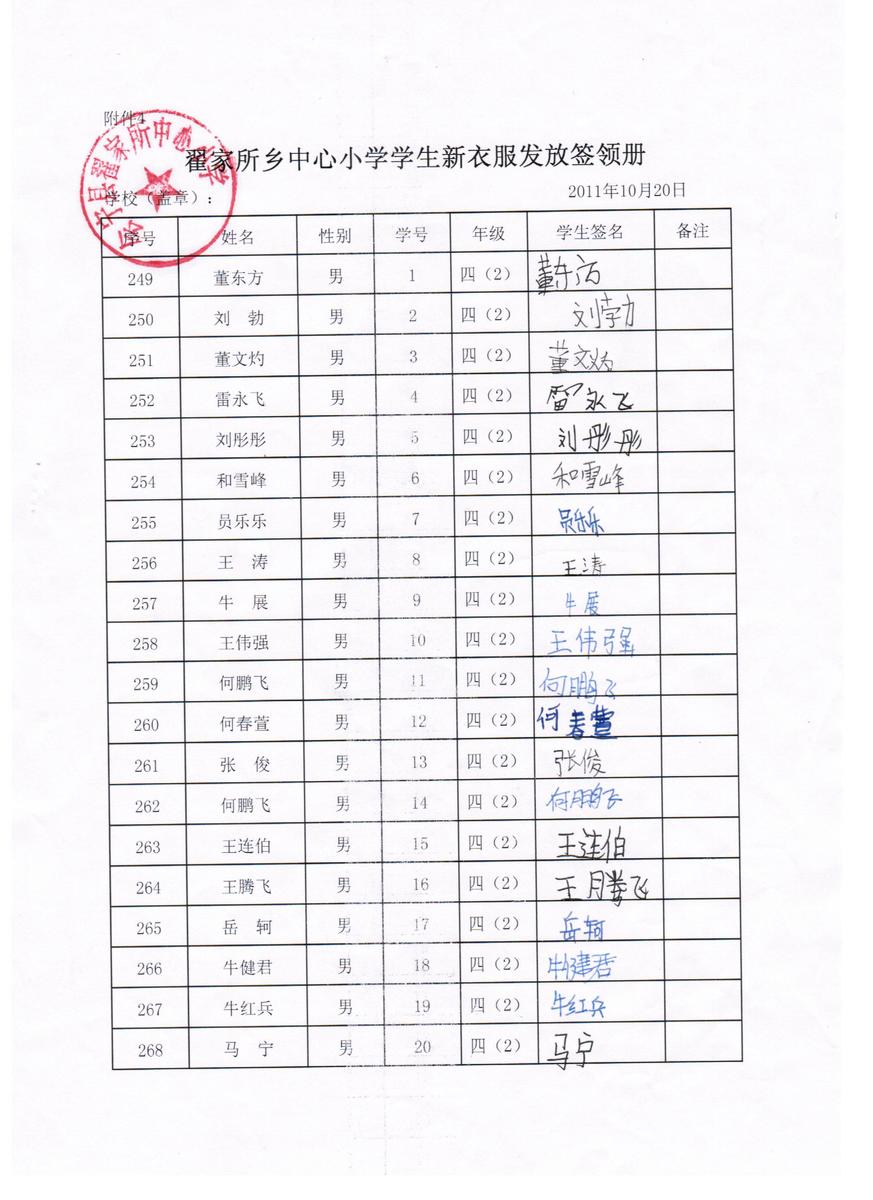 附件4
翟家所乡中心小学学生新衣服发放签领册
会宁县翟家所中心小学
学校（盖章）：
2011年10月20日
序号 姓名 性别 学号 年级 学生签名 备注
249 董东方 男 1 四（2） 董东方
250 刘 勃 男 2 四（2） 刘勃
251 董文灼 男 3 四（2） 董文灼
252 雷永飞 男 4 四（2） 雷永飞
253 刘彤彤 男 5 四（2） 刘彤彤
254 和雪峰 男 6 四（2） 和雪峰
255 员乐乐 男 7 四（2） 员乐乐
256 王 涛 男 8 四（2） 王涛
257 牛 展 男 9 四（2） 牛展
258 王伟强 男 10 四（2） 王伟强
259 何鹏飞 男 11 四（2） 何鹏飞
260 何春萱 男 12 四（2） 何春萱
261 张 俊 男 13 四（2） 张俊
262 何鹏飞 男 14 四（2） 何鹏飞
263 王连伯 男 15 四（2） 王连伯
264 王腾飞 男 16 四（2） 王腾飞
265 岳 轲 男 17 四（2） 岳轲
266 牛健君 男 18 四（2） 牛健君
267 牛红兵 男 19 四（2） 牛红兵
268 马 宁 男 20 四（2） 马宁